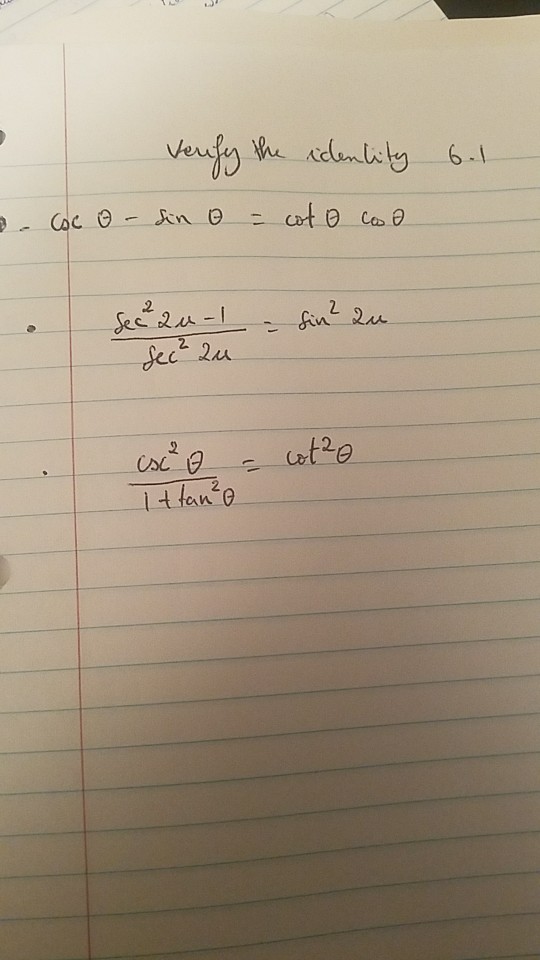 Verify the identity 6.1
- csc θ - sin θ = cot θ cos θ
• (sec² 2u - 1) / (sec² 2u) = sin² 2u
• (csc² θ) / (1 + tan² θ) = cot² θ